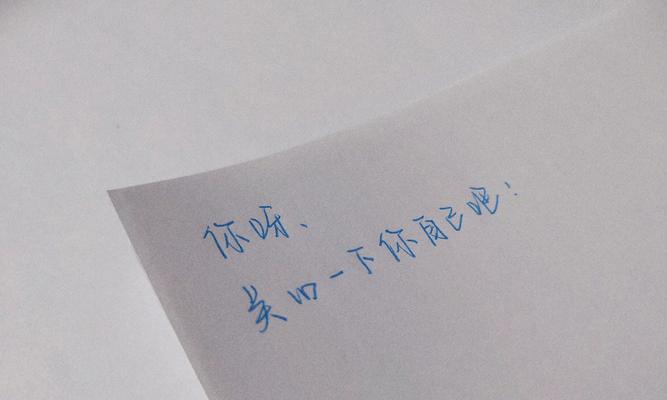 你呀、
关心一下你自己吧!